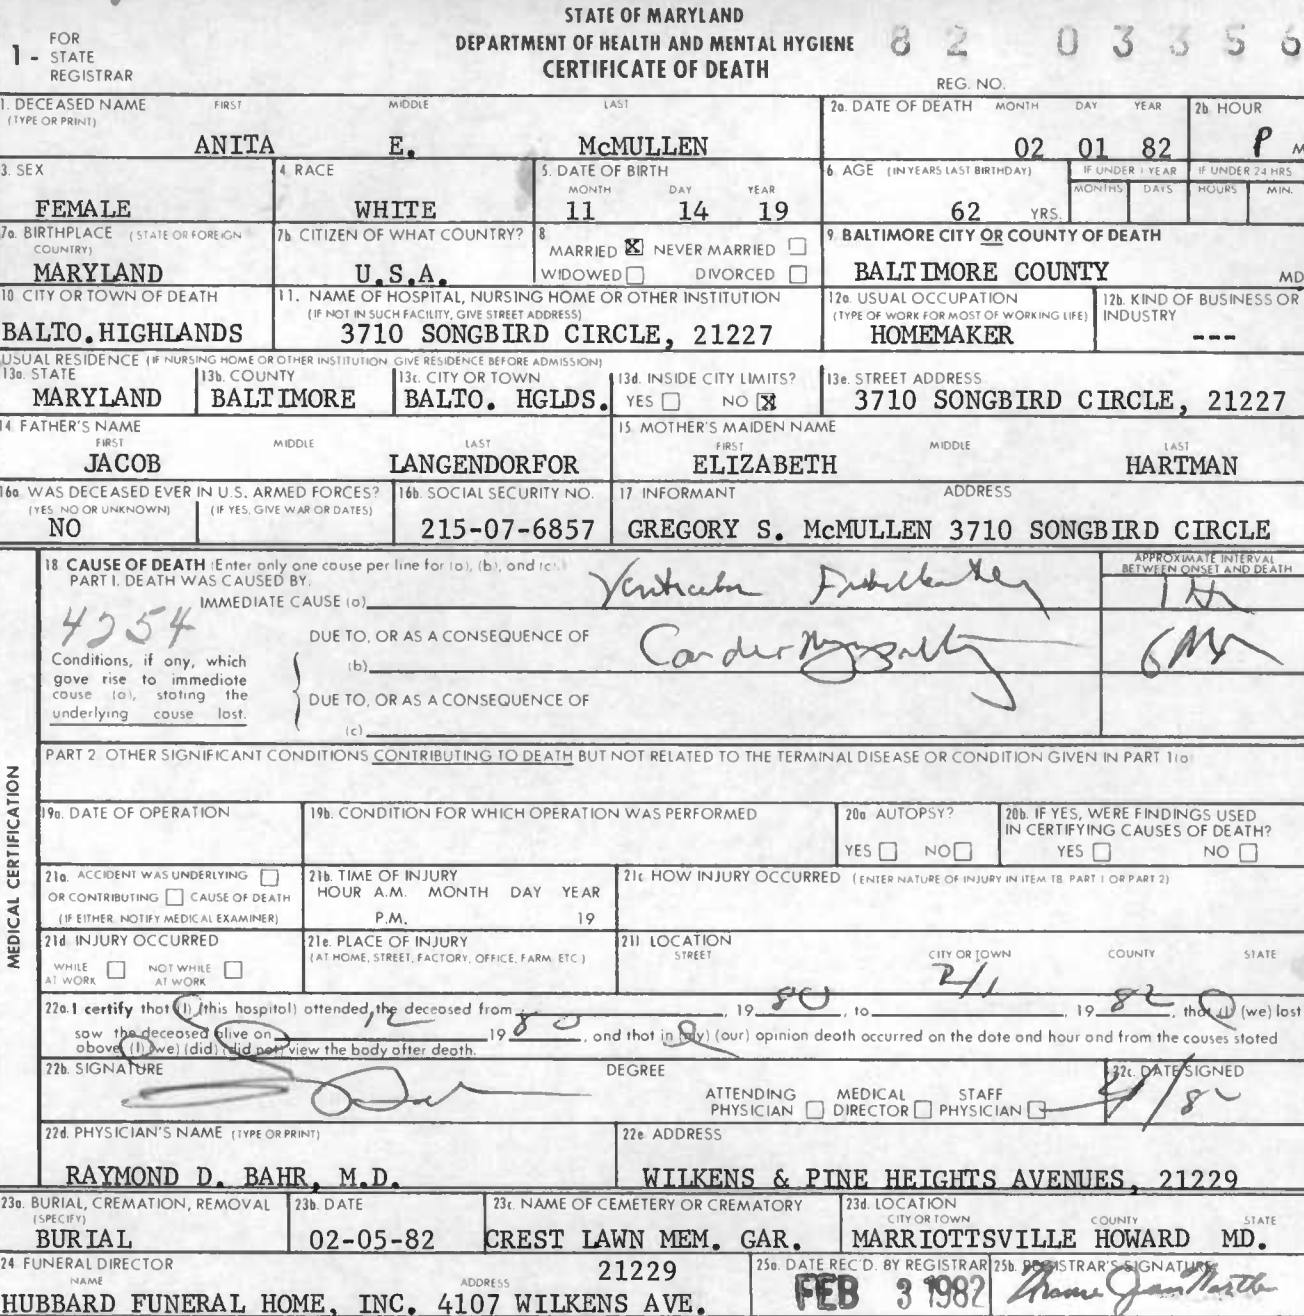 STATE OF MARYLAND
DEPARTMENT OF HEALTH AND MENTAL HYGIENE
CERTIFICATE OF DEATH
1 - FOR STATE REGISTRAR
82 03356
REG. NO.
1. DECEASED NAME (TYPE OR PRINT) FIRST MIDDLE LAST
ANITA E. McMULLEN
2a. DATE OF DEATH MONTH DAY YEAR
02 01 82
2b. HOUR
P M
3. SEX
FEMALE
4. RACE
WHITE
5. DATE OF BIRTH
MONTH DAY YEAR
11 14 19
6. AGE (IN YEARS LAST BIRTHDAY)
62 YRS.
IF UNDER 1 YEAR
MONTHS DAYS
IF UNDER 24 HRS
HOURS MIN.
7a. BIRTHPLACE (STATE OR FOREIGN COUNTRY)
MARYLAND
7b. CITIZEN OF WHAT COUNTRY?
U.S.A.
8. MARRIED ☒ NEVER MARRIED ☐
WIDOWED ☐ DIVORCED ☐
9. BALTIMORE CITY OR COUNTY OF DEATH
BALTIMORE COUNTY MD
10 CITY OR TOWN OF DEATH
BALTO.HIGHLANDS
11. NAME OF HOSPITAL, NURSING HOME OR OTHER INSTITUTION
(IF NOT IN SUCH FACILITY, GIVE STREET ADDRESS)
3710 SONGBIRD CIRCLE, 21227
12a. USUAL OCCUPATION
(TYPE OF WORK FOR MOST OF WORKING LIFE)
HOMEMAKER
12b. KIND OF BUSINESS OR INDUSTRY
---
USUAL RESIDENCE (IF NURSING HOME OR OTHER INSTITUTION GIVE RESIDENCE BEFORE ADMISSION)
13a. STATE
MARYLAND
13b. COUNTY
BALTIMORE
13c. CITY OR TOWN
BALTO. HGLDS.
13d. INSIDE CITY LIMITS?
YES ☐ NO ☒
13e. STREET ADDRESS
3710 SONGBIRD CIRCLE, 21227
14. FATHER'S NAME
FIRST MIDDLE LAST
JACOB LANGENDORFOR
15. MOTHER'S MAIDEN NAME
FIRST MIDDLE LAST
ELIZABETH HARTMAN
16a. WAS DECEASED EVER IN U.S. ARMED FORCES?
(YES, NO OR UNKNOWN) (IF YES, GIVE WAR OR DATES)
NO
16b. SOCIAL SECURITY NO.
215-07-6857
17 INFORMANT ADDRESS
GREGORY S. McMULLEN 3710 SONGBIRD CIRCLE
18. CAUSE OF DEATH (Enter only one cause per line for (a), (b), and (c).)
PART I. DEATH WAS CAUSED BY:
APPROXIMATE INTERVAL BETWEEN ONSET AND DEATH
IMMEDIATE CAUSE (a) Ventricular
4254
DUE TO, OR AS A CONSEQUENCE OF
(b) Cardiomyopathy
Conditions, if any, which
gave rise to immediate
cause (a), stating the
underlying cause last.
DUE TO, OR AS A CONSEQUENCE OF
(c)
PART 2 OTHER SIGNIFICANT CONDITIONS CONTRIBUTING TO DEATH BUT NOT RELATED TO THE TERMINAL DISEASE OR CONDITION GIVEN IN PART 1(a)
MEDICAL CERTIFICATION
19a. DATE OF OPERATION
19b. CONDITION FOR WHICH OPERATION WAS PERFORMED
20a AUTOPSY?
YES ☐ NO ☐
20b. IF YES, WERE FINDINGS USED IN CERTIFYING CAUSES OF DEATH?
YES ☐ NO ☐
21a. ACCIDENT WAS UNDERLYING ☐
OR CONTRIBUTING ☐ CAUSE OF DEATH
(IF EITHER, NOTIFY MEDICAL EXAMINER)
21b. TIME OF INJURY
HOUR A.M. MONTH DAY YEAR
P.M. 19
21c. HOW INJURY OCCURRED (ENTER NATURE OF INJURY IN ITEM 18, PART 1 OR PART 2)
21d INJURY OCCURRED
WHILE AT WORK ☐ NOT WHILE AT WORK ☐
21e. PLACE OF INJURY
(AT HOME, STREET, FACTORY, OFFICE, FARM, ETC.)
21f LOCATION
STREET CITY OR TOWN COUNTY STATE
22a. I certify that (I) (this hospital) attended the deceased from 19 80, to 2/1, 19 82, that (I) (we) lost
saw the deceased alive on 12 19 80, and that in (my) (our) opinion death occurred on the date and hour and from the causes stated
above. (I) (we) (did) (did not) view the body after death.
22b. SIGNATURE DEGREE
ATTENDING PHYSICIAN ☐ MEDICAL DIRECTOR ☐ STAFF PHYSICIAN ☐
22c. DATE SIGNED
22d. PHYSICIAN'S NAME (TYPE OR PRINT)
RAYMOND D. BAHR, M.D.
22e. ADDRESS
WILKENS & PINE HEIGHTS AVENUES, 21229
23a. BURIAL, CREMATION, REMOVAL (SPECIFY)
BURIAL
23b. DATE
02-05-82
23c. NAME OF CEMETERY OR CREMATORY
CREST LAWN MEM. GAR.
23d. LOCATION
CITY OR TOWN COUNTY STATE
MARRIOTTSVILLE HOWARD MD.
24 FUNERAL DIRECTOR
NAME ADDRESS 21229
HUBBARD FUNERAL HOME, INC. 4107 WILKENS AVE.
25a. DATE REC'D. BY REGISTRAR
FEB 3 1982
25b. REGISTRAR'S SIGNATURE